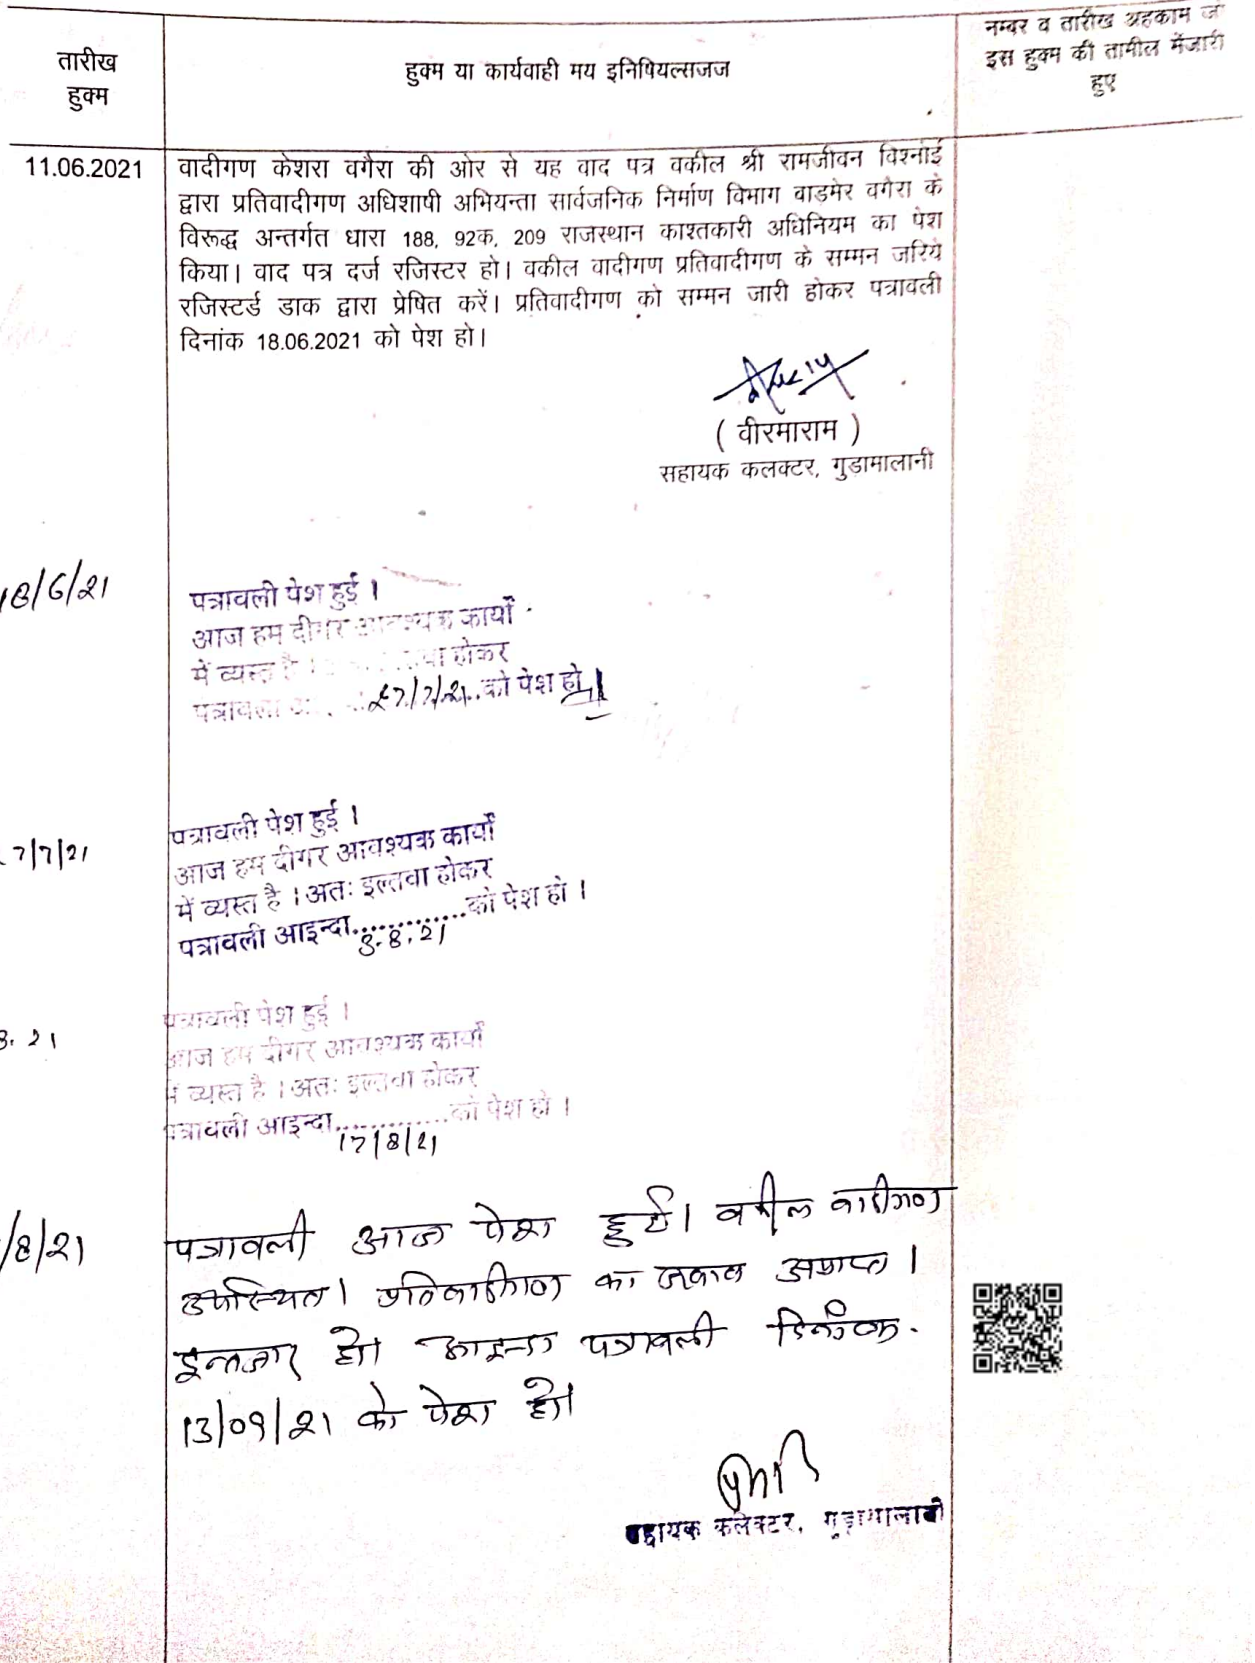 तारीख
हुक्म
हुक्म या कार्यवाही मय इनिषियल्सजज
नम्बर व तारीख अहकाम जो
इस हुक्म की तामील मेंजारी
हुए
11.06.2021
वादीगण केशरा वगैरा की ओर से यह वाद पत्र वकील श्री रामजीवन विश्नोई
द्वारा प्रतिवादीगण अधिशाषी अभियन्ता सार्वजनिक निर्माण विभाग वाडमेर वगैरा के
विरूद्ध अन्तर्गत धारा 188, 92क, 209 राजस्थान काश्तकारी अधिनियम का पेश
किया। वाद पत्र दर्ज रजिस्टर हो। वकील वादीगण प्रतिवादीगण के सम्मन जरिये
रजिस्टर्ड डाक द्वारा प्रेषित करें। प्रतिवादीगण को सम्मन जारी होकर पत्रावली
दिनांक 18.06.2021 को पेश हो।
( वीरमाराम )
सहायक कलक्टर, गुडामालानी
18/6/21
पत्रावली पेश हुई ।
आज हम दीगर आवश्यक कार्यों
में व्यस्त है । होकर
पत्रावली 27/7/21 को पेश हो
7/7/21
पत्रावली पेश हुई ।
आज हम दीगर आवश्यक कार्यों
में व्यस्त है । अतः इल्तवा होकर
पत्रावली आइन्दा.............को पेश हो ।
3.8.21
8. 21
पत्रावली पेश हुई ।
आज हम दीगर आवश्यक कार्यों
में व्यस्त है । अतः इल्तवा होकर
पत्रावली आइन्दा.............को पेश हो ।
17/8/21
/8/21
पत्रावली आज पेश हुई। वकील वादीगण
उपस्थित। प्रतिवादीगण का जवाब अप्राप्त।
इन्तजार हो। आइन्दा पत्रावली दिनांक.
13/09/21 को पेश हो।
सहायक कलेक्टर, गुड़ामालानी